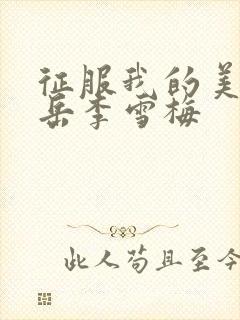 征服我的美
岳李雪梅
此人苟且至今